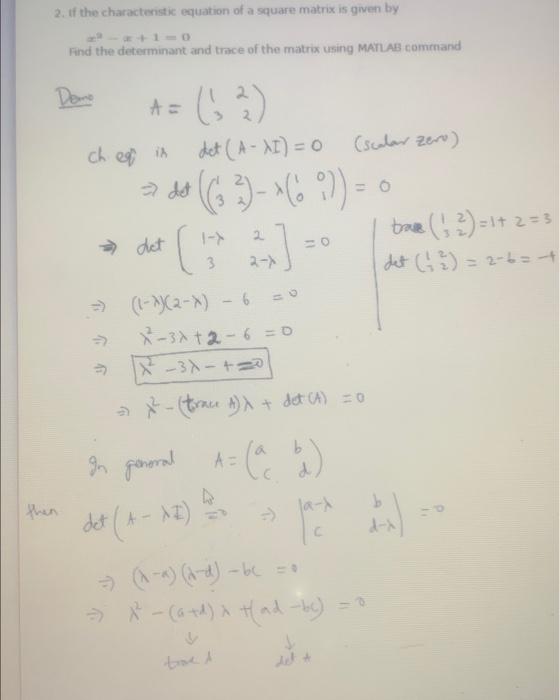 2. If the characteristic equation of a square matrix is given by
x² − x + 1 = 0
Find the determinant and trace of the matrix using MATLAB command
Demo A = (1 2; 3 2)
ch eqⁿ is det (A − λI) = 0 (scalar zero)
⇒ det ((1 2; 3 2) − λ(1 0; 0 1)) = 0
⇒ det [1−λ 2; 3 2−λ] = 0
trace (1 2; 3 2) = 1 + 2 = 3
det (1 2; 3 2) = 2 − 6 = −4
⇒ (1−λ)(2−λ) − 6 = 0
⇒ λ² − 3λ + 2 − 6 = 0
⇒ λ² − 3λ − 4 = 0
⇒ λ² − (trace A)λ + det(A) = 0
In general A = (a b; c d)
then det (A − λI) = 0 ⇒ |a−λ b; c d−λ| = 0
⇒ (λ−a)(λ−d) − bc = 0
⇒ λ² − (a+d) λ + (ad − bc) = 0
↓ ↓
trace A det A